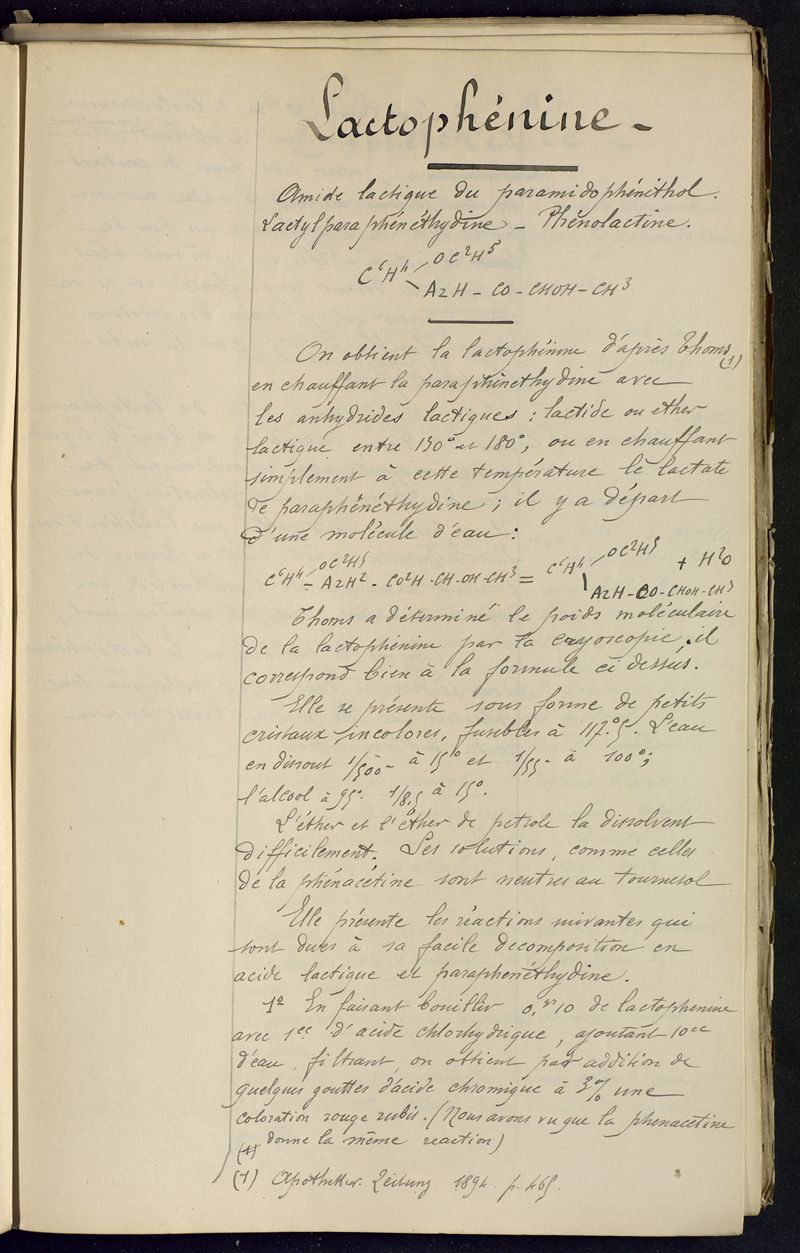 Lactophénine -
Amide lactique du paramidophénéthol.
Lactylparaphénéthydine - Phénolactine.
OC²H⁵
C⁶H⁴
AzH - CO - CHOH - CH³
On obtient la lactophénine d'après Thoms (1)
en chauffant la paraphénéthydine avec
les anhydrides lactiques : lactide ou éther
lactique entre 130° et 180°, ou en chauffant
simplement à cette température le lactate
de paraphénéthydine ; il y a départ
d'une molécule d'eau :
C⁶H⁴ - OC²H⁵ - AzH² - CO²H - CH - OH - CH³ = C⁶H⁴ OC²H⁵ + H²O
AzH - CO - CHOH - CH³
Thoms a déterminé le poids moléculaire
de la lactophénine par la cryoscopie, il
correspond bien à la formule ci dessus.
Elle se présente sous forme de petits
cristaux incolores, fusibles à 117°.5. L'eau
en dissout 1/500 - à 15° et 1/55 - à 100° ;
l'alcool à 95° 1/8,5 à 15°.
L'éther et l'éther de petrole la dissolvent
difficilement. Les solutions, comme celles
de la phénacétine sont neutres au tournesol
Elle présente les réactions suivantes qui
sont dues à sa facile decomposition en
acide lactique et paraphenéthydine.
1º En faisant bouillir 0,ᵍʳ10 de lactophenine
avec 1cc d'acide chlorhydrique, ajoutant 10cc
d'eau, filtrant, on obtient par addition de
quelques gouttes d'acide chromique à 3% une
coloration rouge rubis. (Nous avons vu que la phenacétine
donne la même reaction)
(1)
(1) Apotheker. Zeitung 1894. p. 465.